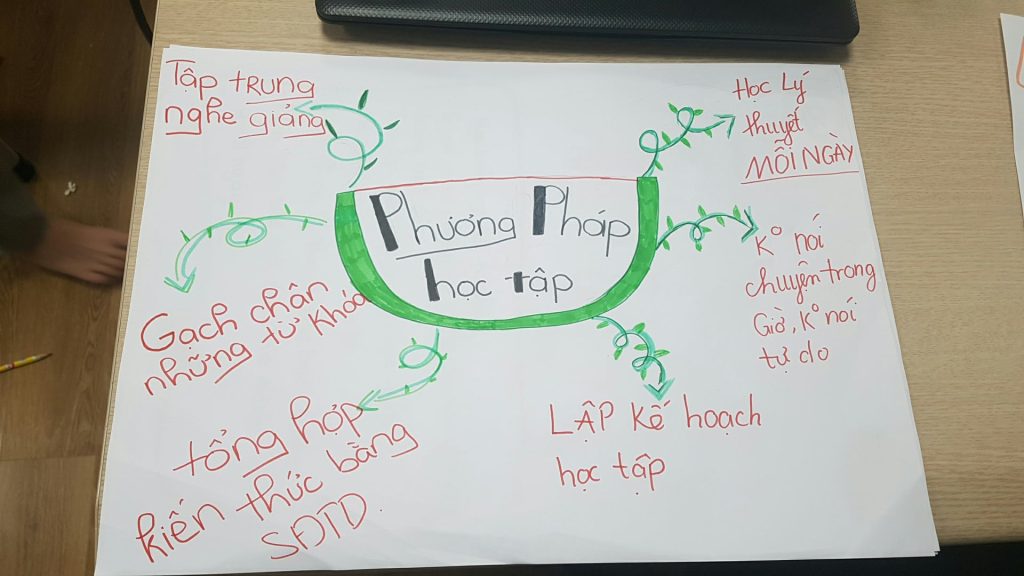 Tập tRUng
nghe giảng
Học Lý
thuyết
MỖI NGÀY
Phương Pháp
học tập
Gạch chân
những từ khóa
K° nói
chuyện trong
Giờ, K° nói
tự do
tổng hợp
kiến thức bằng
SĐTD.
LẬP Kế hoạch
học tập